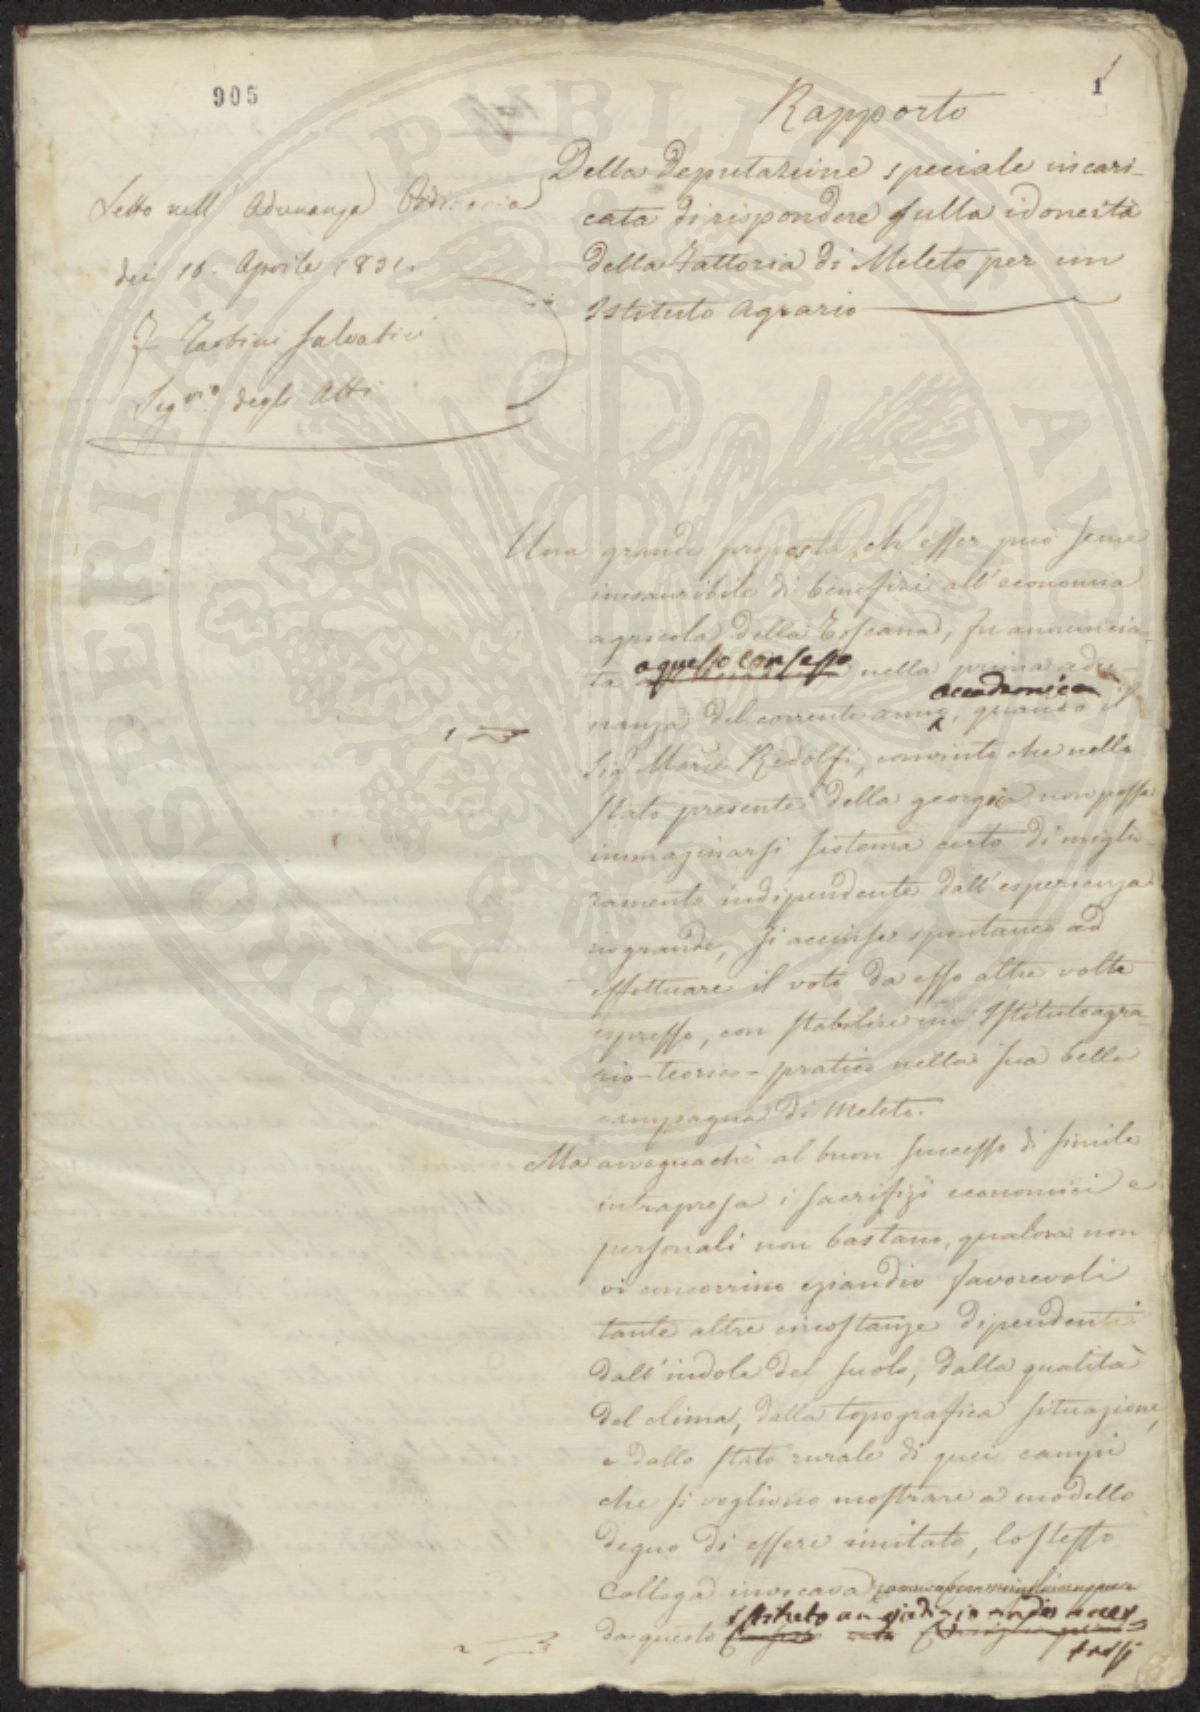 905
1
Rapporto
Della Deputazione speciale incari-
cata di rispondere sulla idoneità
della Fattoria di Meleto per un
Istituto Agrario
Letto nell' Adunanza Ordinaria
dei 10. Aprile 1831.
F Tartini Salvatici
Seg.rio degli Atti
PROSPERITATI PUBLICAE AUG
Una grande proposta, ch'esser può seme
inesauribile di benefizi all'economia
agricola della Toscana, fu annuncia-
ta a questo consesso nella prima adu-
nanza del corrente anno accademico, quando il
Sig. March. Ridolfi, convinto che nello
stato presente della georgica non possa
immaginarsi sistema certo di miglio-
ramento indipendente dall'esperienza
in grande, si accinse spontaneo ad
effettuare il voto da esso altre volte
espresso, con stabilire un Istituto agra-
rio-teorico-pratico nella sua bella
campagna di Meleto.
Ma avvegnachè al buon successo di simile
intrapresa i sacrifizj economici e
personali non bastano, qualora non
vi concorrino eziandio favorevoli
tante altre circostanze dipendenti
dall'indole del suolo, dalla qualità
del clima, dalla topografica situazione,
e dallo stato rurale di quei campi
che si vogliono mostrare a modello
degno di essere imitato, lo stesso
Collega invocava
da questo Istituto un giudizio
1
2